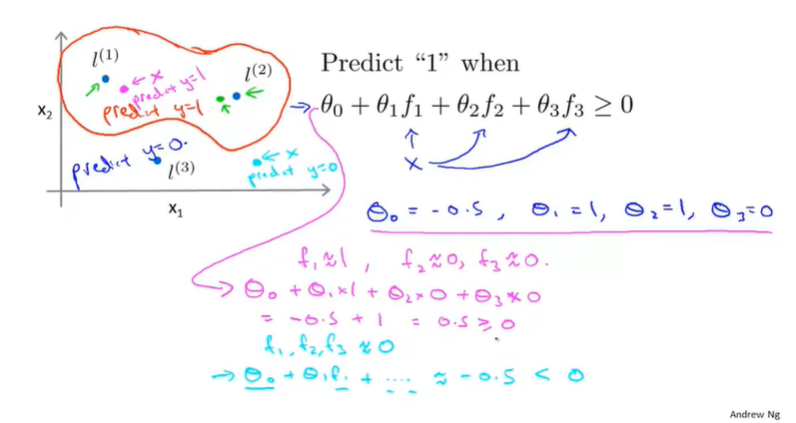 l⁽¹⁾
← x
predict y=1
l⁽²⁾
predict y=1
x₂
predict y=0.
l⁽³⁾
← x
predict y=0
x₁
Predict “1” when
→ θ₀ + θ₁f₁ + θ₂f₂ + θ₃f₃ ≥ 0
x
θ₀ = -0.5 , θ₁ = 1, θ₂ = 1, θ₃ = 0
f₁ ≈ 1 , f₂ ≈ 0, f₃ ≈ 0.
→ θ₀ + θ₁ × 1 + θ₂ × 0 + θ₃ × 0
= -0.5 + 1 = 0.5 ≥ 0
f₁, f₂, f₃ ≈ 0
→ θ₀ + θ₁f₁ + .... ≈ -0.5 < 0
Andrew Ng